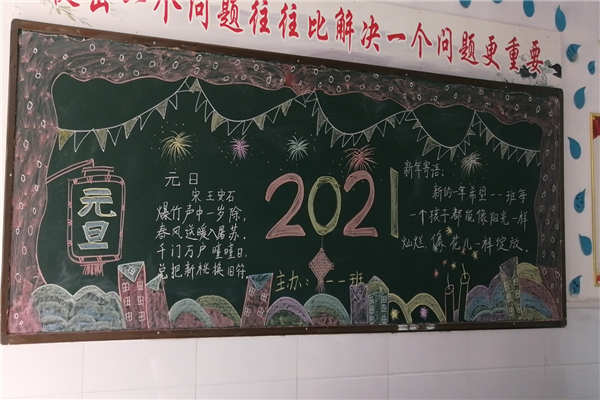 出一个问题往往比解决一个问题更重要
元旦
元日
宋 王安石
爆竹声中一岁除,
春风送暖入屠苏.
千门万户曈曈日,
总把新桃换旧符.
2021
主办:一一班
新年寄语:
新的一年希望一一班每
一个孩子都能像阳光一样
灿烂,像花儿一样绽放.